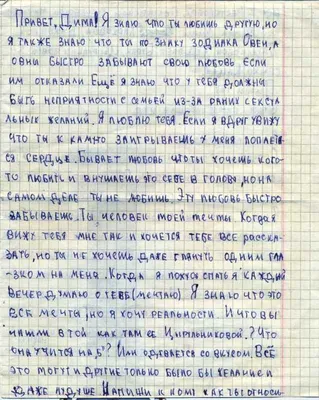 Привет, Дима! Я знаю что ты любишь другую, но
я также знаю что ты по знаку зодиака Овен, а
овны быстро забывают свою любовь если
им отказали Ещё я знаю что у тебя должны
быть неприятности с семьёй из-за раних сексуа
льных желаний. Я люблю тебя Если я вдруг увижу
что ты к кАмто заигрываешь у меня лопаетя
ся сердце. Бывает любовь что ты хочешь кого-
то любить и внушаешь это себе в голову, но на
самом деле ты не любишь. Эту любовь быстро
забываешь. Ты человек моей мечты Когда я
вижу тебя мне так и хочется тебе всё расска-
зать, но ты не хочешь даже глянуть одним гла-
зком на меня. Когда я ложусь спать я каждый
вечер думаю о тебе (мечтаю) Я знаю что это
всё мечты, но я хочу реальности И что вы
нашли в той как там её Цирульниковой? Что
она учится на 5? Или одевается со вкусом. Всё
это могут и другие только было бы желание и
даже лудше Напиши к кому как ты относи-